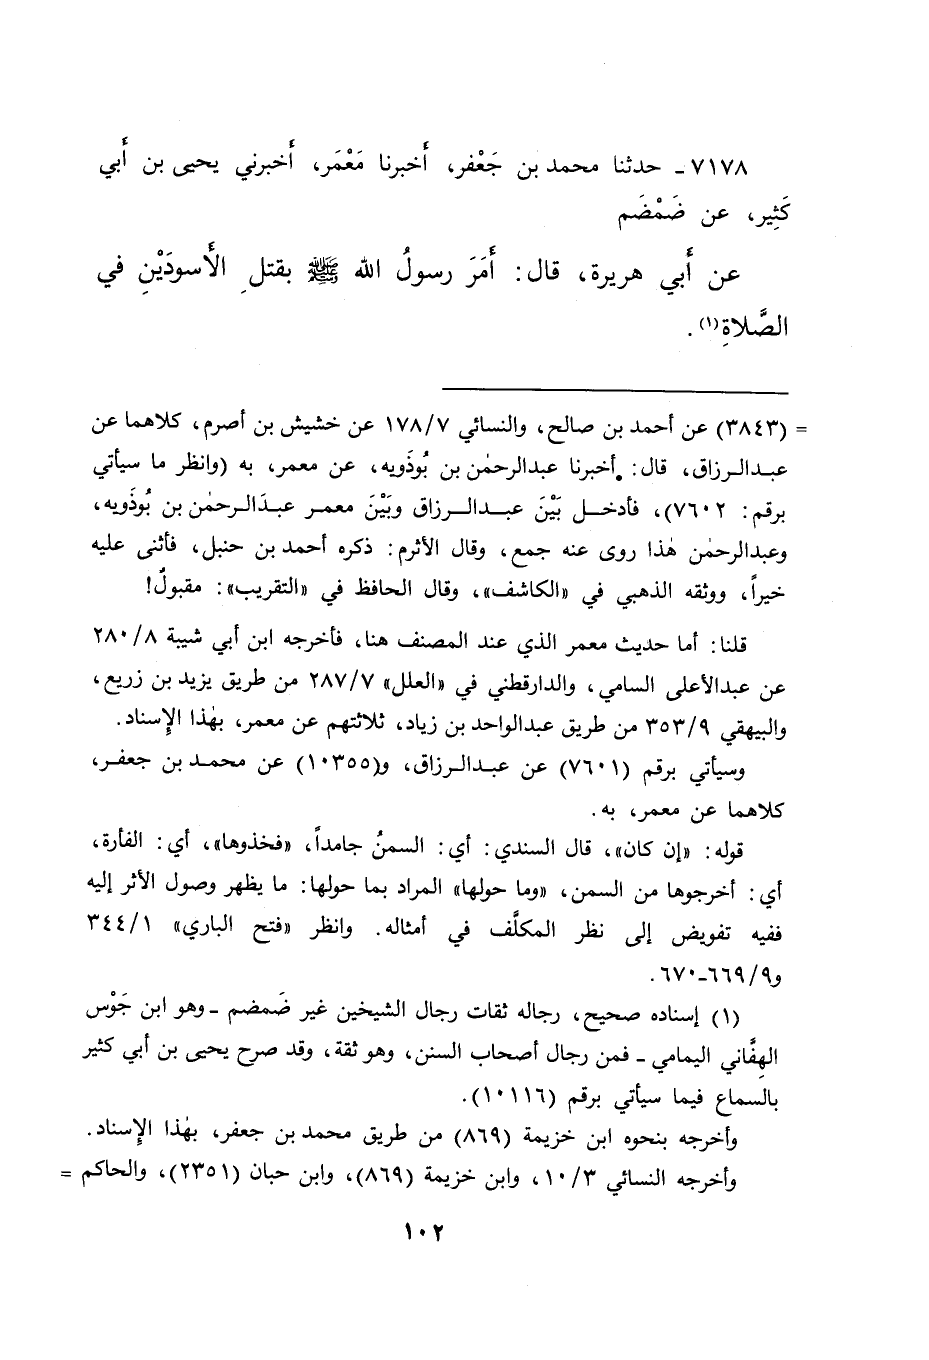 ٧١٧٨ـ حدثنا محمد بن جَعْفر، أَخبرنا مَعْمَر، أَخبرني يحيى بن أَبي
كَثِير، عن ضَمْضَم
عن أَبي هريرة، قال: أَمَرَ رسولُ الله ﷺ بقتلِ الأَسودَيْنِ في
الصَّلاةِ(١).
= (٣٨٤٣) عن أحمد بن صالح، والنسائي ١٧٨/٧ عن خشيش بن أصرم، كلاهما عن
عبدالرزاق، قال: أخبرنا عبدالرحمٰن بن بُوذَويه، عن معمر، به (وانظر ما سيأتي
برقم: ٧٦٠٢)، فأدخل بَيْنَ عبدالرزاق وبَيْنَ معمر عبدَالرحمٰن بن بُوذَويه،
وعبدالرحمٰن هٰذا روى عنه جمع، وقال الأثرم: ذكره أحمد بن حنبل، فأثنى عليه
خيراً، ووثقه الذهبي في «الكاشف»، وقال الحافظ في «التقريب»: مقبولٌ!
قلنا: أما حديث معمر الذي عند المصنف هنا، فأخرجه ابن أبي شيبة ٢٨٠/٨
عن عبدالأعلى السامي، والدارقطني في «العلل» ٢٨٧/٧ من طريق يزيد بن زريع،
والبيهقي ٣٥٣/٩ من طريق عبدالواحد بن زياد، ثلاثتهم عن معمر، بهٰذا الإسناد.
وسيأتي برقم (٧٦٠١) عن عبدالرزاق، و(١٠٣٥٥) عن محمد بن جعفر،
كلاهما عن معمر، به.
قوله: «إن كان»، قال السندي: أي: السمنُ جامداً، «فخذوها»، أي: الفأرة،
أي: أخرجوها من السمن، «وما حولها» المراد بما حولها: ما يظهر وصول الأثر إليه
ففيه تفويض إلى نظر المكلَّف في أمثاله. وانظر «فتح الباري» ٣٤٤/١
و٦٦٩/٩ـ٦٧٠.
(١) إسناده صحيح، رجاله ثقات رجال الشيخين غير ضَمضم ـ وهو ابن جَوْس
الهِفَّاني اليمامي ـ فمن رجال أصحاب السنن، وهو ثقة، وقد صرح يحيى بن أبي كثير
بالسماع فيما سيأتي برقم (١٠١١٦).
وأخرجه بنحوه ابن خزيمة (٨٦٩) من طريق محمد بن جعفر، بهٰذا الإسناد.
وأخرجه النسائي ١٠/٣، وابن خزيمة (٨٦٩)، وابن حبان (٢٣٥١)، والحاكم =
١٠٢